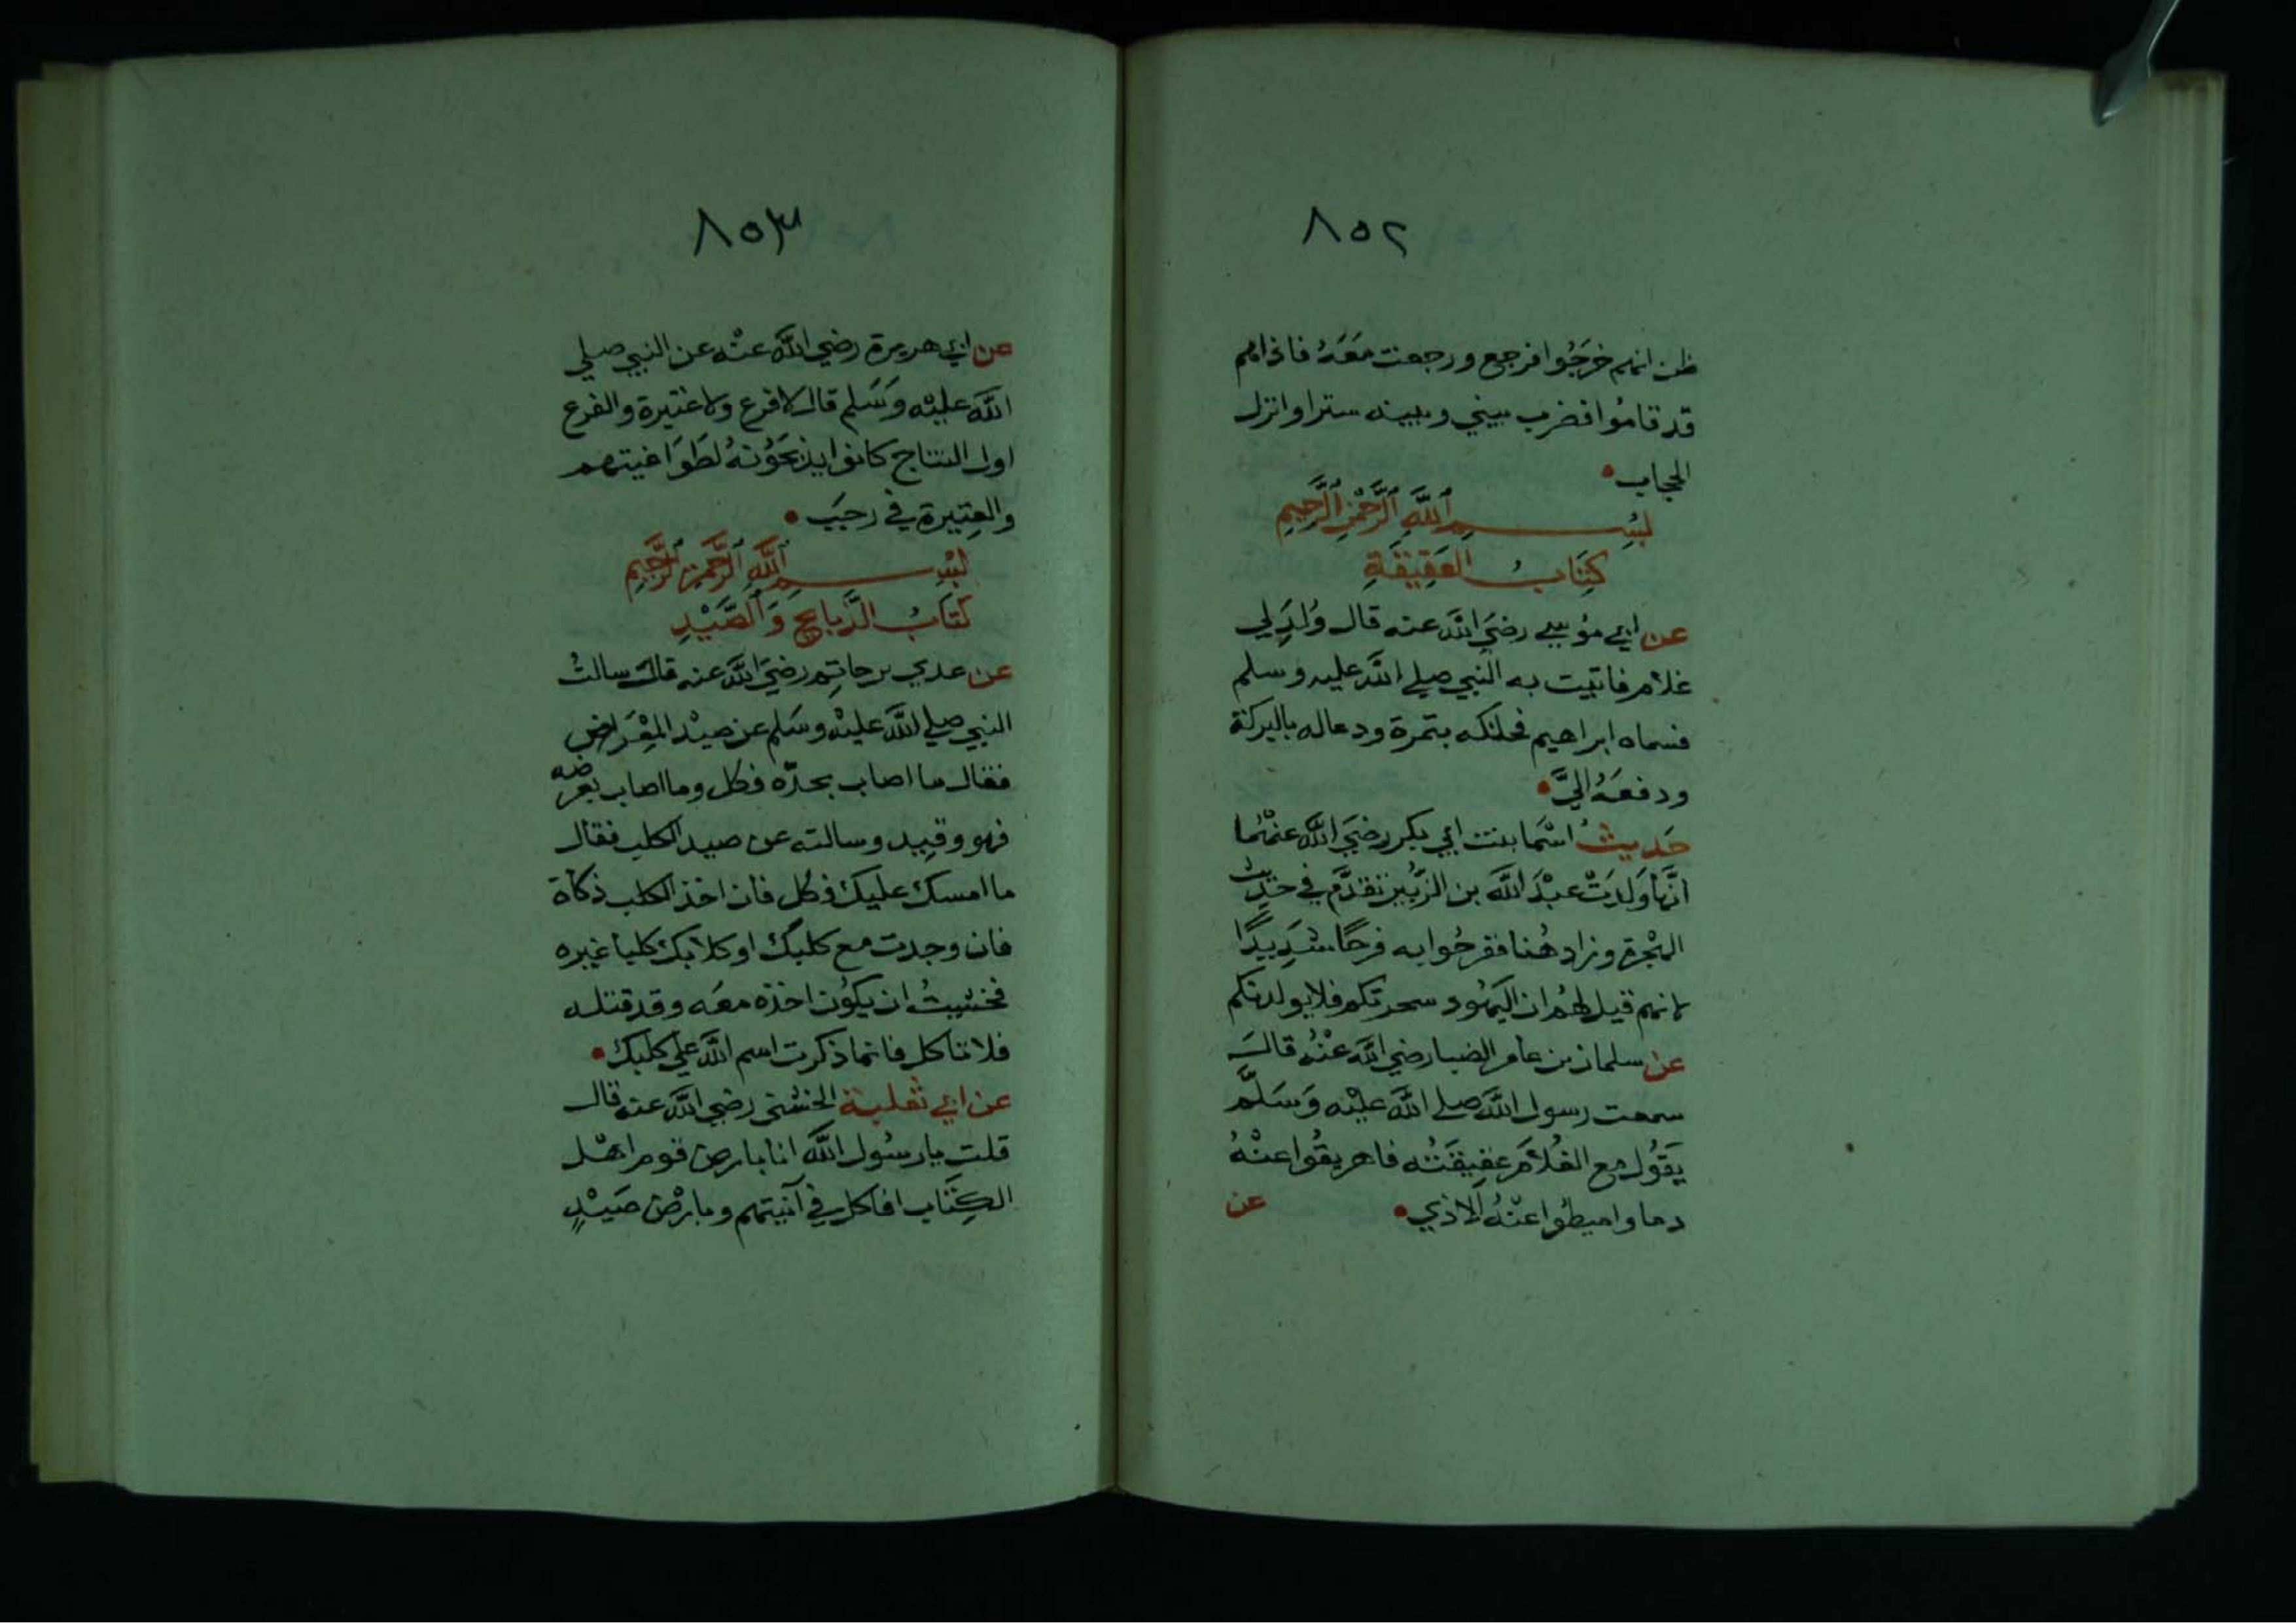 ٨٥٢
ظن انهم خرجُوا فرجع ورجعت مَعَهُ فاذاهم
قد قامُوا فضرب بيني وبينه سترا وانزل
الحجاب
بِسْمِ ٱللَّهِ ٱلرَّحْمٰنِ ٱلرَّحِيمِ
كِتَابُ العَقِيقَةِ
عن ابي مُوسي رضيَ اللّه عنه قال وُلِدَ لي
غلام فاتيت به النبي صلي اللّه عليه وسلم
فسماه ابراهيم فحنكه بتمرة ودعاله بالبركة
ودفعَهُ اليَّ
حَديثُ اسْمَا بنت ابي بكر رضيَ اللّه عنهُما
انَّها وَلدَتْ عبْدَ اللَّه بن الزبُير تقدَّم في حَديث
الهجْرة وزاد هُنا ففرحُوا به فرحًا شَدِيدًا
لانهم قيل لهُم ان اليَهُود سحرتكم فلا يولد لكم
عن سلمان بن عامر الضبا رضي اللَّه عنْهُ قالَ
سمعت رسول اللَّه صلي اللَّه عليْه وَسَلَّم
يَقُول مع الغُلاَم عَقِيقَتُه فاهريقُوا عنْهُ
دما واميطُوا عنْهُ الاذي عن
٨٥٣
عن ابي هريرة رضي اللَّه عنْه عن النبي صلي
اللَّه عليْه وسَلم قال لا فرع ولا عتيرة والفرع
اول النتاج كانوا يذبحَوُنهُ لطَوَاغيتهم
والعِتيرة في رجبَ
بِسْمِ ٱللَّهِ ٱلرَّحْمٰنِ ٱلرَّحِيمِ
كتَابُ الذَّبايح وَالصَّيْدِ
عن عدي بن حاتِم رضيَ اللَّه عنه قالَ سالتُ
النبي صلي اللَّه عليْه وسَلم عن صيْد المِعْرَاض
فقال ما اصاب بحدّه فكل وما اصاب بعرضه
فهو وقِيد وسالته عن صيد الكلب فقال
ما امسك عليك فكل فان اخذ الكلب ذكاة
فان وجدت مع كلبك او كلابك كلبا غيره
فخشيتُ ان يكُون اخذه معَه وقد قتله
فلا تاكل فانما ذكرت اسم اللَّه علي كلبك
عن ابي ثعلبة الخشني رضي اللَّه عنه قال
قلت يا رسُول اللَّه انا بارض قوم اهْل
الكِتَاب افاكل في آنيتهم وبارْض صَيْدٍ